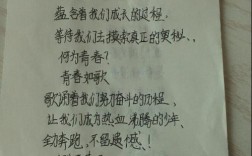 蕴含着我们成长的过程.
等待我们去摸索真正的奥秘、、
何为青春?
青春如歌
歌阴着我们努力奋斗的历程、
让我们成为热血沸腾的少年、
全力奔跑,不留遗憾、!